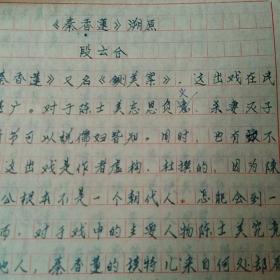 《秦香莲》溯source
段云合
秦香莲》又名《铡美案》，这出戏在民
广。对于陈士美忘恩负义，杀妻灭子
节可以说儒妇皆知。同时，也有
这出戏是作者虚构、杜撰的，因为陈
公根本不是一个朝代人。怎能会到一
而，对于戏中的主要人物陈士美究竟
地人，秦香莲的模特儿来自何处却